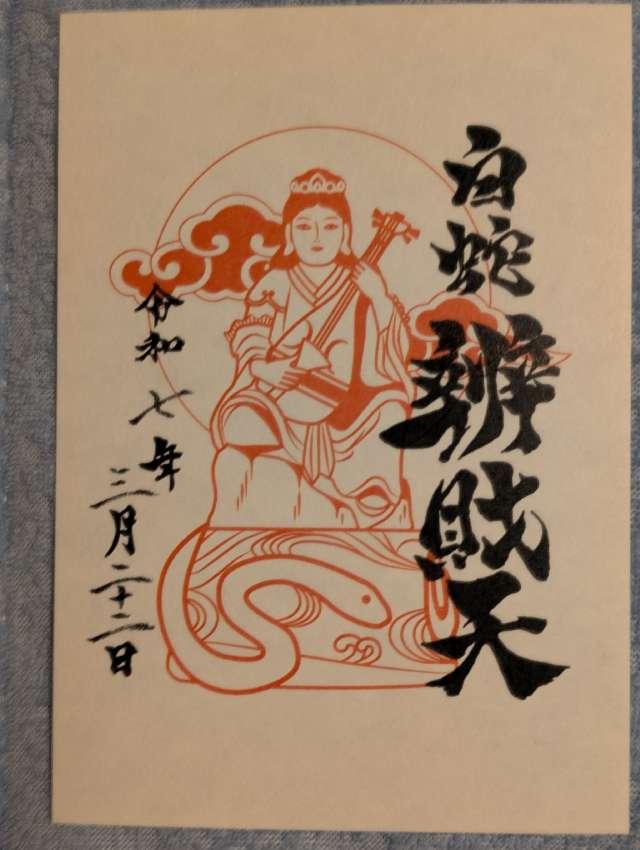 白蛇辨財天
令和七年
三月二十二日